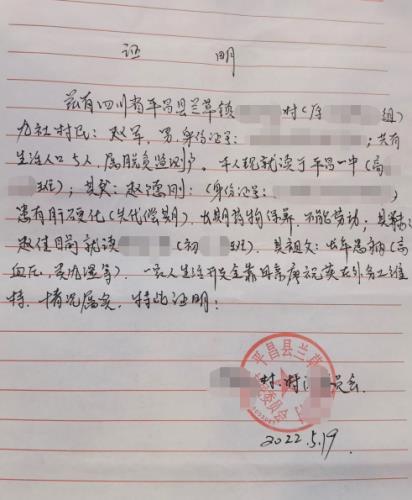 证 明
兹有四川省平昌县兰草镇 村(原 组)
九社村民: 赵军, 男, 身份证号: ; 共有
生活人口5人, 属脱贫监测户。本人现就读于平昌一中(高
班); 其父: 赵德刚: (身份证号: )
患有肝硬化(失代偿期), 长期药物保养, 不能劳动; 其
赵佳 就读 (初 班), 其祖父: 长年患病(高
血压, 等), 一家人生活开支全靠母亲 在外务工维
持, 情况属实, 特此证明:
平昌县兰草
委员会
村 村 员会
2022.5.19